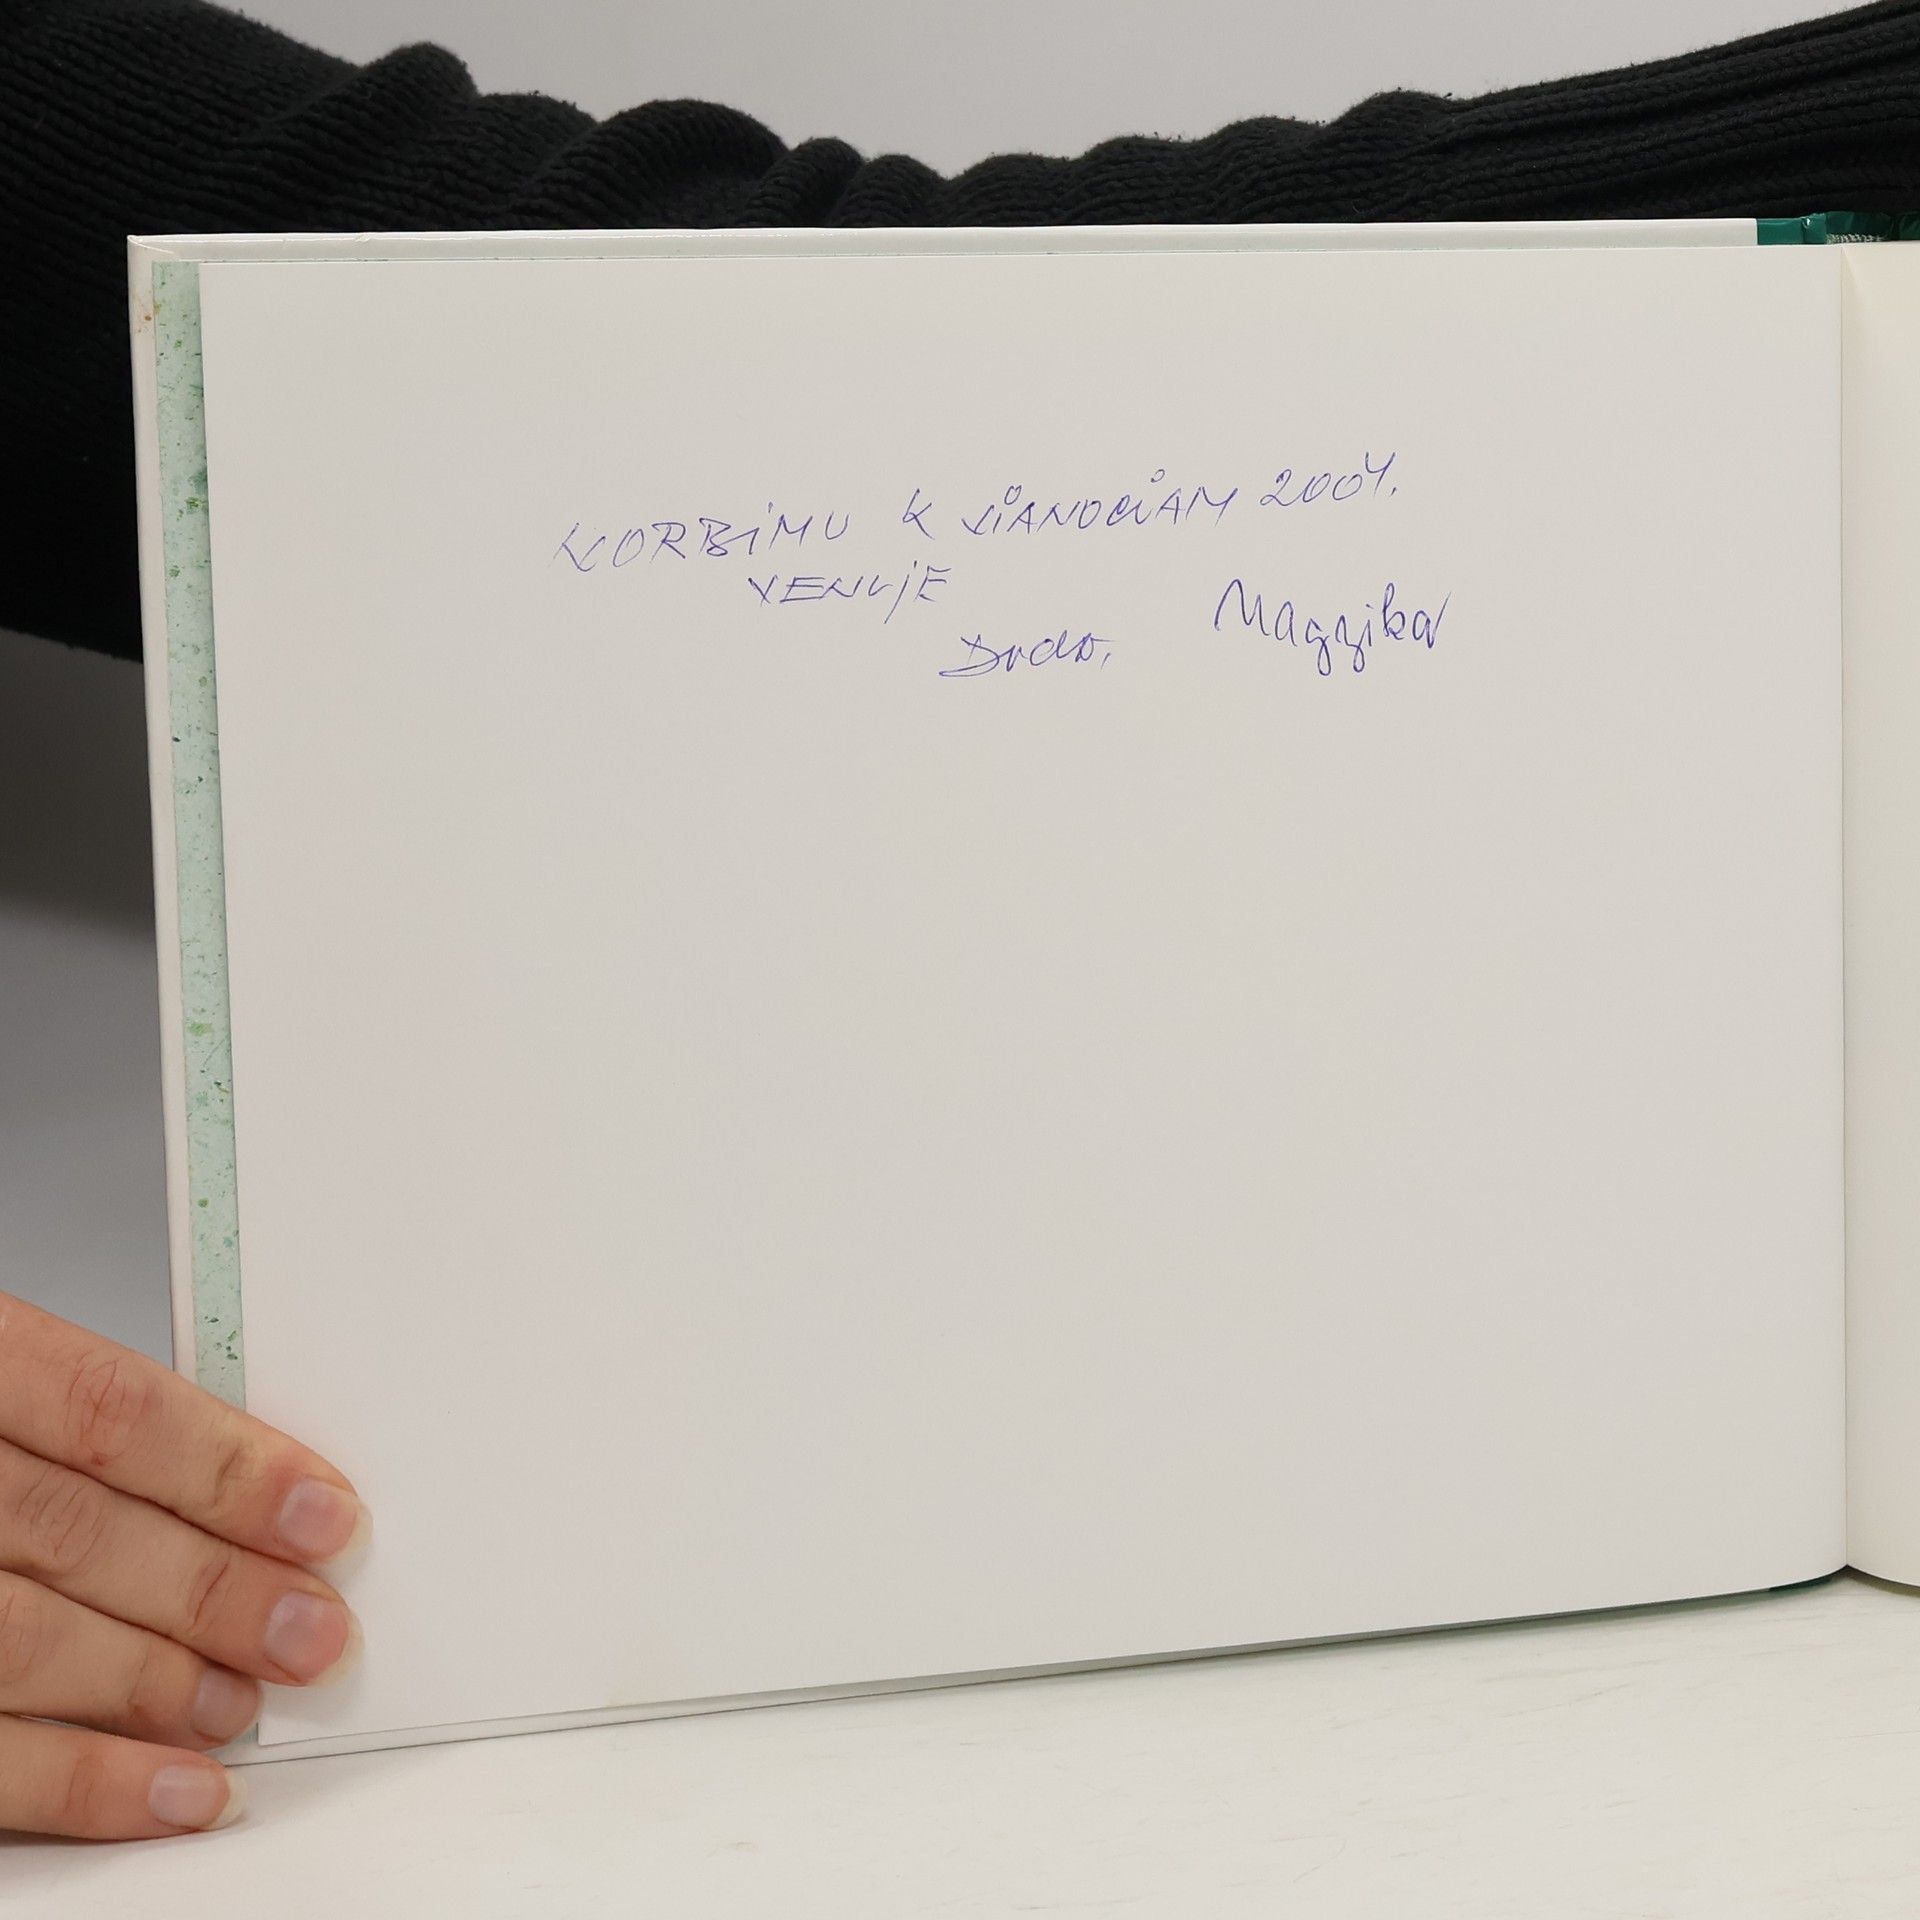 NORBIMU K VIANOCIAM 2004.
VENUJE
Dodo, Magzika